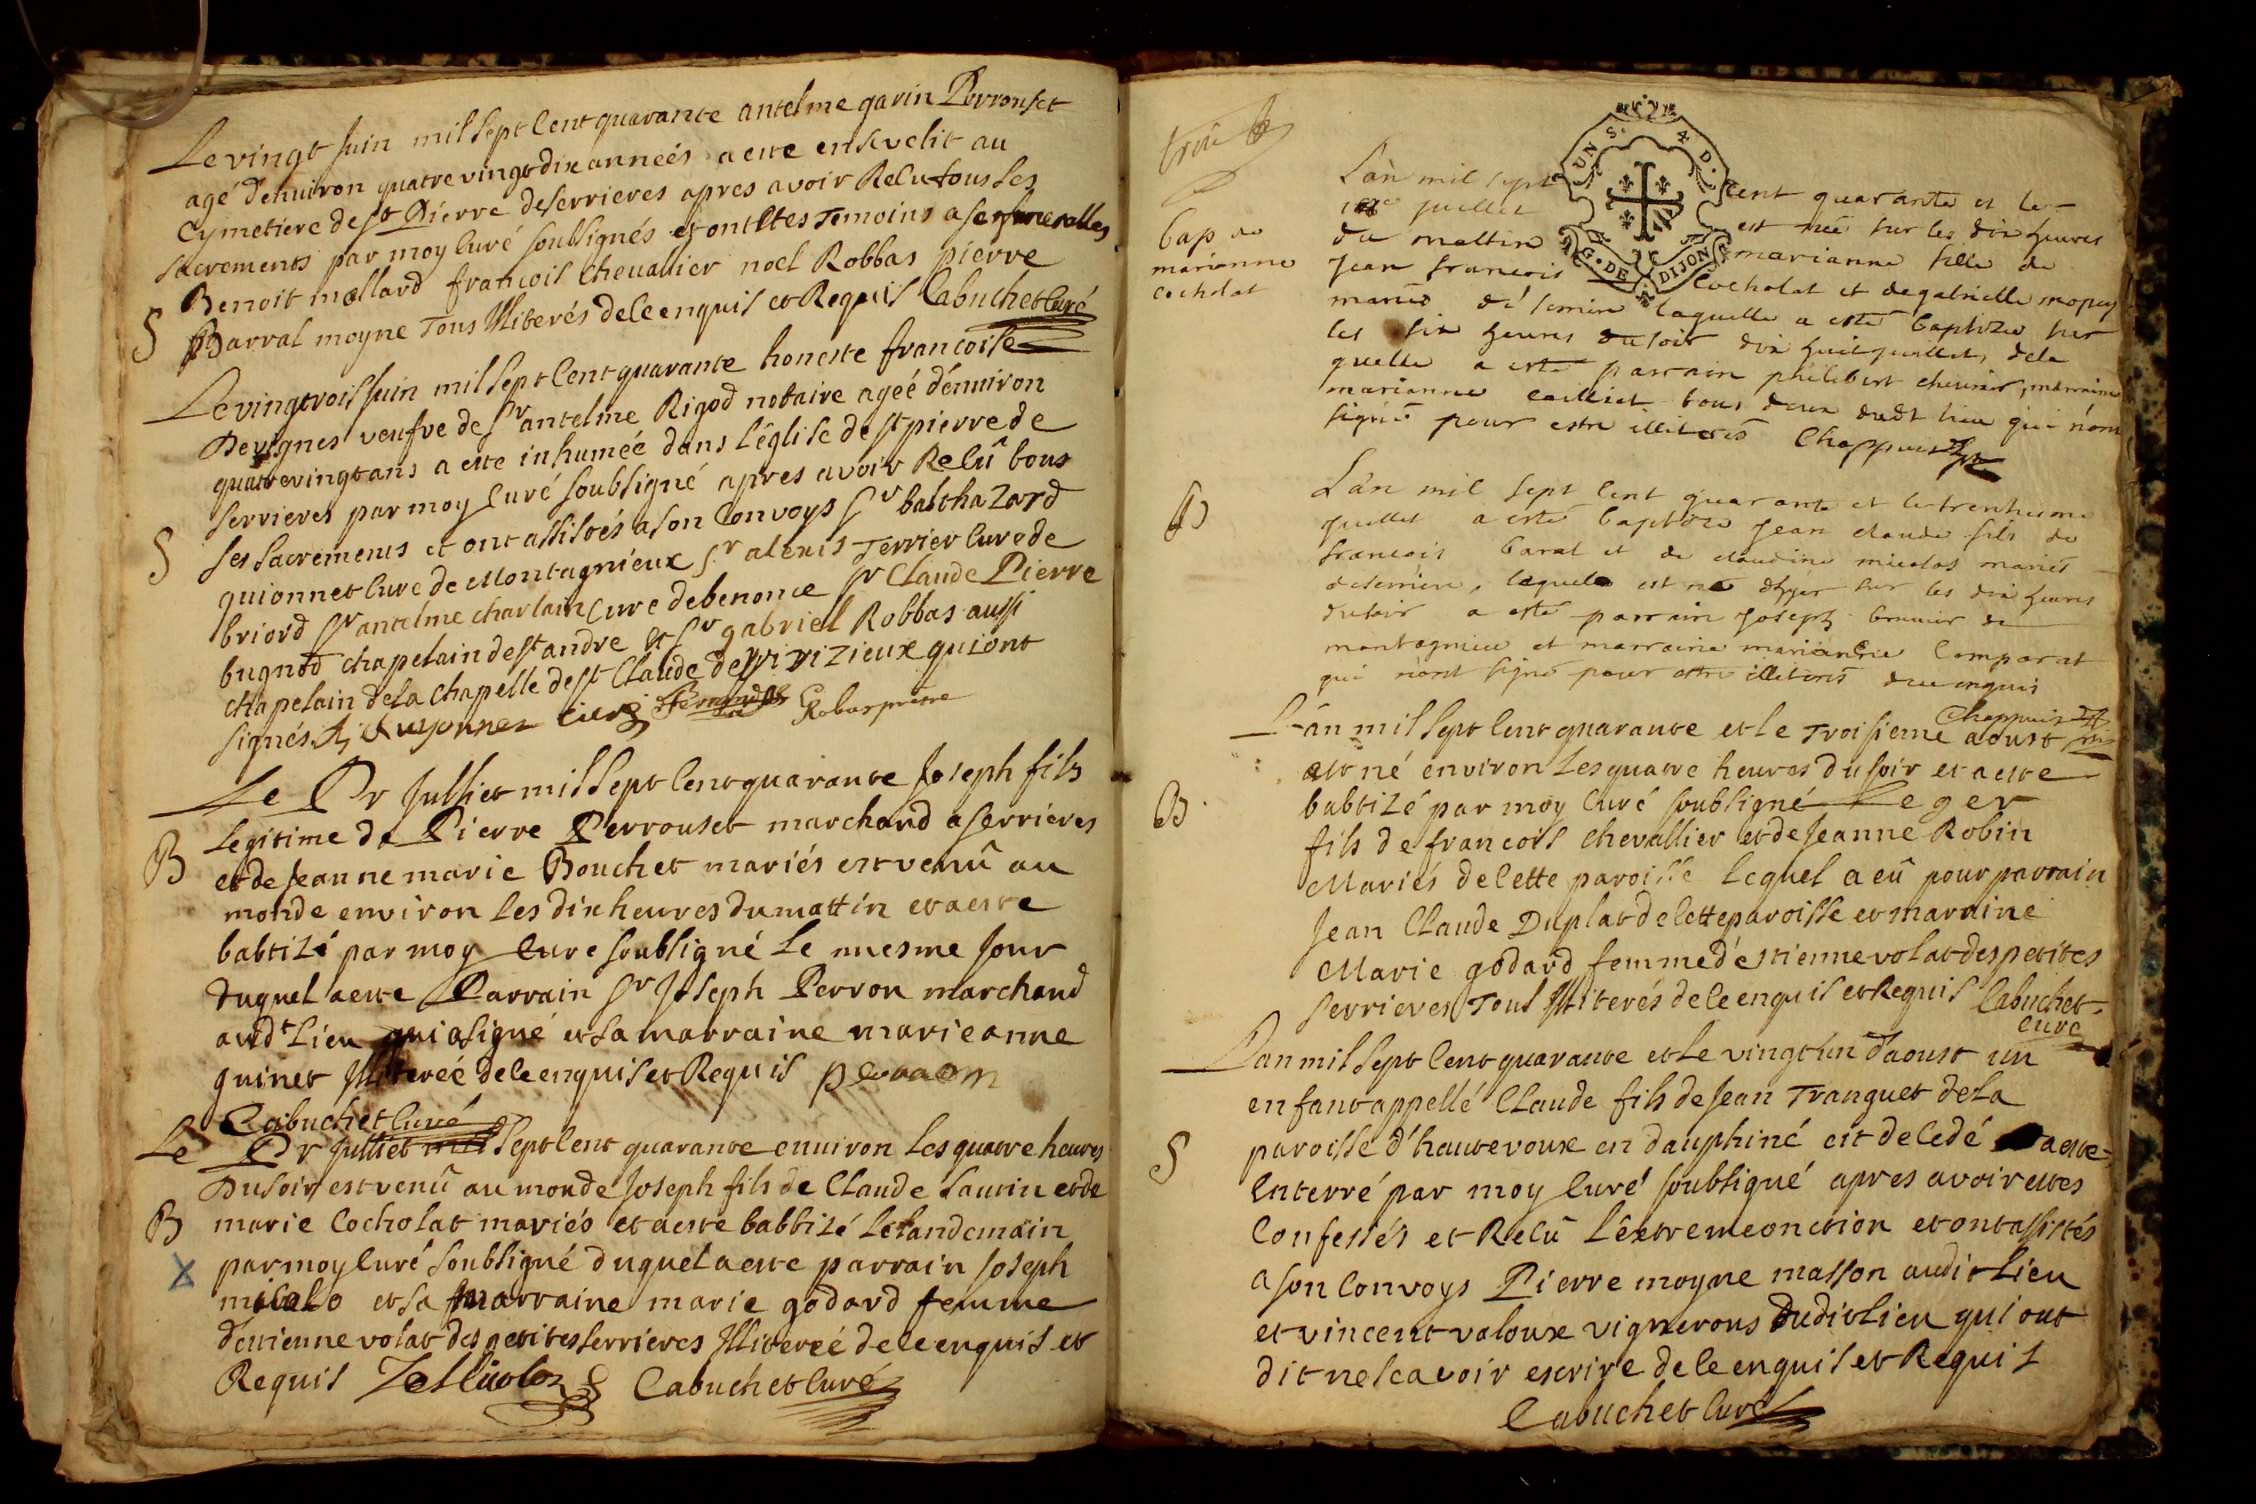 Le vingt Juin mil sept cent quarante antelme garin Perrouset
agé d'enuiron quatre vingt dix anneés a este ensevelit au
Cymetiere de st Pierre de serrieres apres avoir Recu tous ses
sacrements par moy curé soubsignés et ont etes Temoins a ses funeralles
Benoit mollard francois chevallier noel Robbas pierre
S
Barral moyne Tous Illiterés de ce enquis et Requis Cabuchet Curé
Le vingt trois Juin mil sept cent quarante honeste francoise
Devignes veufve de sr antelme Rigod notaire ageé d'enuiron
quatre vingt ans a este inhumeé dans l'église de st pierre de
serrieres par moy curé soubsigné apres avoir Recû tous
S
ses sacrements et ont assistés a son Convoys sr balthazard
quionnet curé de Montagnieux sr alexis Terrier curé de
briord sr antelme charlain curé de benonce sr Claude Pierre
bugnod chapelain de st andre et sr gabriel Robbas aussi
chapelain de la chapelle de st Claude de vizieux qui ont
signés. Guyonnet curé Robas pretre
Le Pr Julliet mil sept cent quarante Joseph fils
legitime de Pierre Perrouset marchand a serrieres
B
et de Jeanne marie Bouchet mariés est venû au
monde environ les dix heures du mattin et a este
babtizé par moy curé soubsigné le mesme Jour
duquel a este Parrain sr Joseph Perron marchand
audt lieu qui a signé et sa marraine marie anne
guinet Illitereé de ce enquis et Requis perron
Cabuchet curé
Le Pr Julliet mil sept cent quarante enuiron les quatre heures
Du soir est venû au monde Joseph fils de Claude Saurin et de
B
marie Cocholat mariés et a este babtizé le landemain
X
par moy curé soubsigné duquel a este parrain Joseph
et sa marraine marie godard femme
d'estienne volat des petites serrieres Illitereé de ce enquis et
Requis Cabuchet curé
UN S. 4 D.
G. DE DIJON
L'an mil sept cent quarante et le
juillet est néé sur les dix heures
Bap de
marianne
cocholat
du mattin marianne fille de
Jean francois Cocholat et de gabrielle
mariés de laquelle a esté baptizée sur
les six heures du soir dix huit juillet, de la
quelle a esté parrain philibert chevrier, marraine
marianne tous deux dudt lieu qui n'ont
signé pour estre illiterés Chappuis
L'an mil sept cent quarante et le trentieme
B
juillet a esté baptizé Jean claude fils de
francois baral et de claudine nicolas mariés
de serriere, lequel est né d'hyer sur les dix heures
du soir a esté parrain Joseph brunier de
montagnieu et marraine marianne Comparat
qui n'ont signé pour estre illiterés de ce enquis
Chappuis
L'an mil sept cent quarante et le Troisieme aoust
est né environ les quatre heures du soir et a este
B
babtizé par moy curé soubsigné Leger
fils de francois chevallier et de Jeanne Robin
Mariés de cette paroisse lequel a eû pour parrain
Jean Claude Duplat de cette paroisse et marraine
Marie godard femme d'éstienne volat des petites
serrieres Tous Illiterés de ce enquis et Requis Cabuchet
curé
L'an mil sept cent quarante et le vingt un d'aoust un
enfant appellé Claude fils de Jean Tranquet de la
paroisse d'hautevoux en dauphiné est decedé a este
S
enterré par moy curé soubsigné apres avoir estes
Confessés et Recû l'éxtreme onction et ont assistés
a son Convoys Pierre moyne masson audit lieu
et vincent valoux vignerons Dudit lieu qui ont
dit ne scavoir escrire de ce enquis et Requis
Cabuchet curé